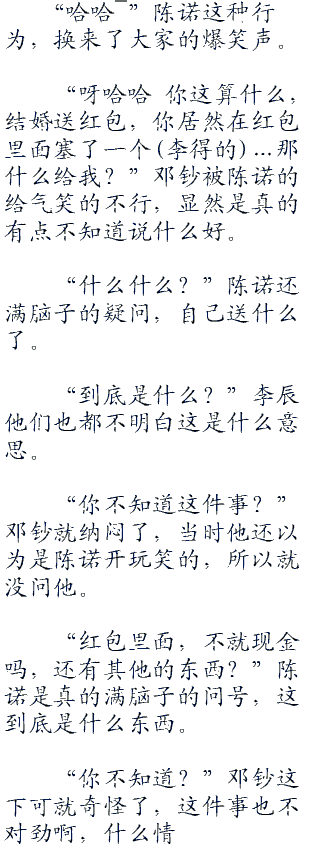 “哈哈~”陈诺这种行
为，换来了大家的爆笑声。
“呀哈哈 你这算什么，
结婚送红包，你居然在红包
里面塞了一个(李得的)...那
什么给我？”邓钞被陈诺的
给气笑的不行，显然是真的
有点不知道说什么好。
“什么什么？”陈诺还
满脑子的疑问，自己送什么
了。
“到底是什么？”李辰
他们也都不明白这是什么意
思。
“你不知道这件事？”
邓钞就纳闷了，当时他还以
为是陈诺开玩笑的，所以就
没问他。
“红包里面，不就现金
吗，还有其他的东西？”陈
诺是真的满脑子的问号，这
到底是什么东西。
“你不知道？”邓钞这
下可就奇怪了，这件事也不
对劲啊，什么情